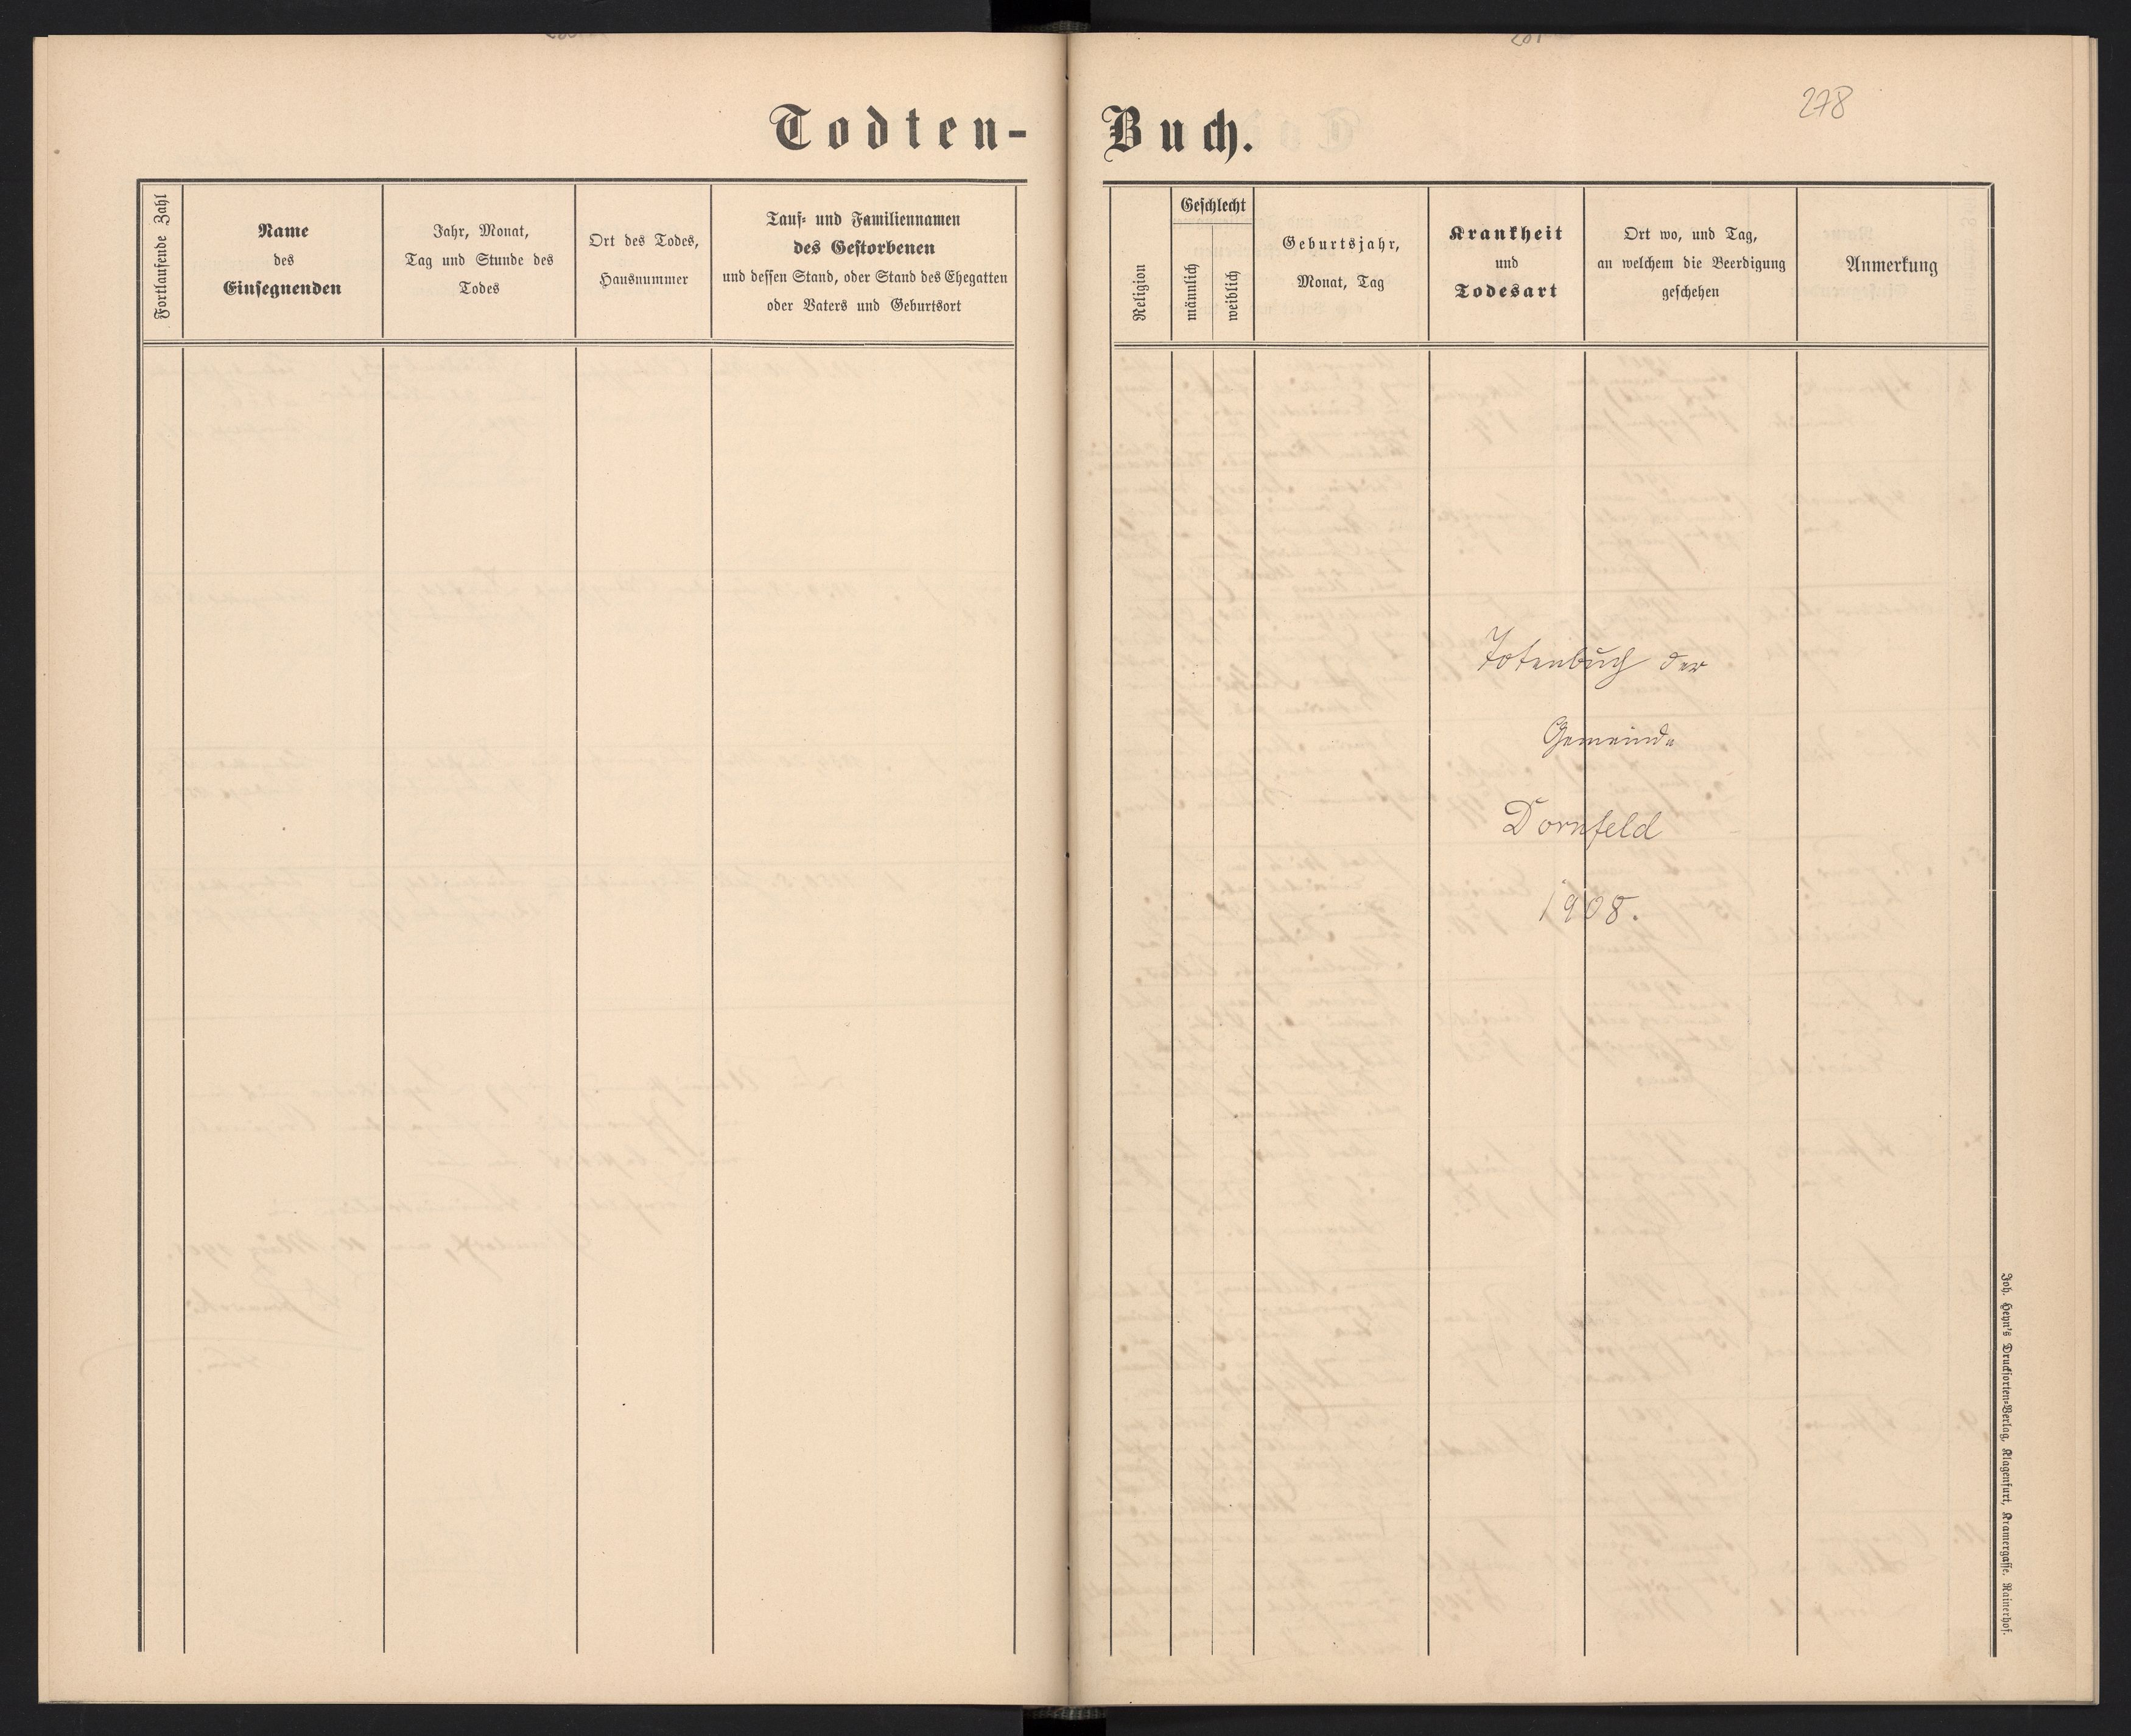 Todten-
Fortlaufende Zahl
Name
des
Einsegnenden
Jahr, Monat,
Tag und Stunde des
Todes
Ort des Todes,
Hausnummer
Tauf- und Familiennamen
des Gestorbenen
und dessen Stand, oder Stand des Ehegatten
oder Vaters und Geburtsort
278
Buch.
Religion
Geschlecht
männlich
weiblich
Geburtsjahr,
Monat, Tag
Krankheit
und
Todesart
Ort wo, und Tag,
an welchem die Beerdigung
geschehen
Anmerkung
Totenbuch der
Gemeinde
Dornfeld
1908.
Joh. Heyn's Drucksorten-Verlag, Klagenfurt, Kramergasse. Rainerhof.